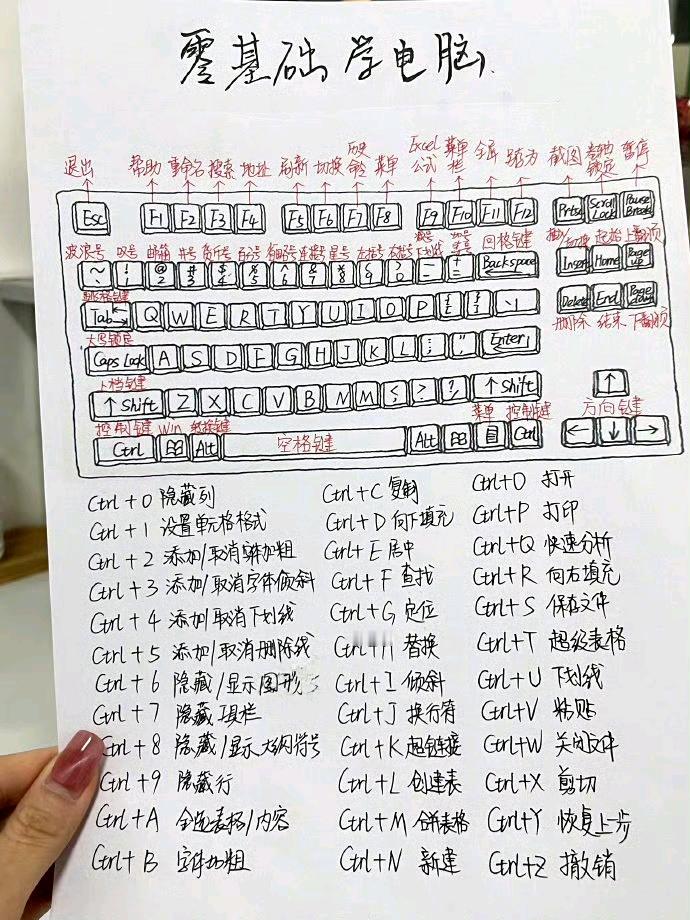 零基础学电脑
退出 帮助 重命名 搜索 地址 刷新 切换 历史命令 菜单 Excel公式 菜单栏 全屏 跨为 截图 暂停
Esc F1 F2 F3 F4 F5 F6 F7 F8 F9 F10 F11 F12 Prtsc Scroll Lock Pause Break
波浪号 叹号 邮箱 井号 货币号 百分号 连接号 星号 左括号 右括号 下划线 回格键 起始 上翻页
~ ` ! 1 @ 2 # 3 $ 4 % 5 ^ 6 & 7 * 8 ( 9 ) 0 — - + = Backspace Insert Home Page up
制表键
Tab Q W E R T Y U I O P { [ } ] \ Delete End Page down
大写锁定 删除 结束 下翻页
Caps Lock A S D F G H J K L : ; " ' Enter
上档键
↑ Shift Z X C V B N M < > ? / ↑ Shift ↑
控制键 Win 菜单 控制键 方向键
Ctrl Alt 空格键 Alt Ctrl ← ↓ →
Ctrl+0 隐藏列
Ctrl+1 设置单元格格式
Ctrl+2 添加/取消字体加粗
Ctrl+3 添加/取消字体倾斜
Ctrl+4 添加/取消下划线
Ctrl+5 添加/取消删除线
Ctrl+6 隐藏/显示图形
Ctrl+7 隐藏工具栏
Ctrl+8 隐藏/显示大纲符号
Ctrl+9 隐藏行
Ctrl+A 全选表格/内容
Ctrl+B 字体加粗
Ctrl+C 复制
Ctrl+D 向下填充
Ctrl+E 居中
Ctrl+F 查找
Ctrl+G 定位
Ctrl+H 替换
Ctrl+I 倾斜
Ctrl+J 换行符
Ctrl+K 超链接
Ctrl+L 创建表
Ctrl+M 合并表格
Ctrl+N 新建
Ctrl+O 打开
Ctrl+P 打印
Ctrl+Q 快速分析
Ctrl+R 向右填充
Ctrl+S 保存文件
Ctrl+T 超级表格
Ctrl+U 下划线
Ctrl+V 粘贴
Ctrl+W 关闭文件
Ctrl+X 剪切
Ctrl+Y 恢复上一步
Ctrl+Z 撤销